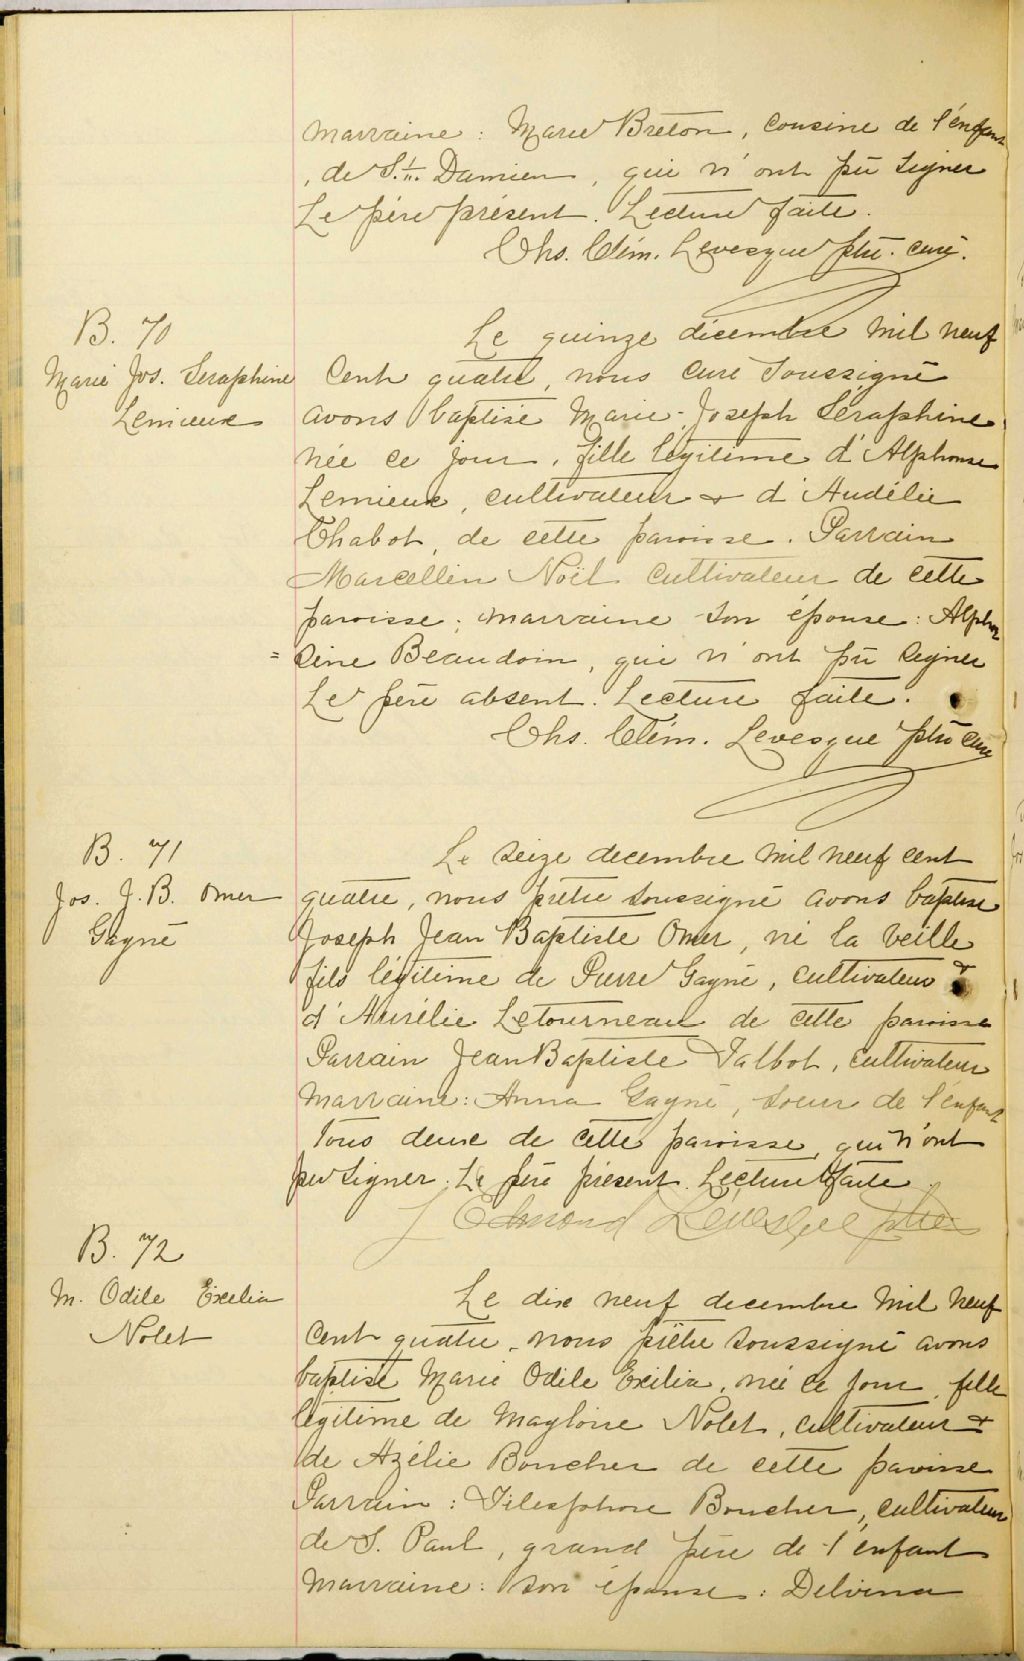 marraine : Marie Breton, cousine de l'enfant
, de S. Damien, qui n'ont pu signer
Le père présent. Lecture faite.
Chs. Clém. Levesque ptre. curé.
B. 70
Marie Jos. Seraphine
Lemieux
Le quinze décembre mil neuf
cent quatre, nous curé soussigné
avons baptisé Marie-Joseph Séraphine
née ce jour, fille légitime d'Alphonse
Lemieux, cultivateur & d'Audélie
Chabot, de cette paroisse. Parrain
Marcellin Noël cultivateur de cette
paroisse ; marraine son épouse : Alphon
= sine Beaudoin, qui n'ont pu signer
Le père absent. Lecture faite.
Chs. Clém. Levesque ptre curé
B. 71
Jos. J. B. Omer
Gagné
Le seize decembre mil neuf cent
quatre, nous prêtre soussigné avons baptisé
Joseph Jean Baptiste Omer, né la veille
fils légitime de Pierre Gagné, cultivateur &
d'Aurélie Letourneau de cette paroisse
Parrain Jean Baptiste Talbot, cultivateur
Marraine : Anna Gagné, soeur de l'enfant
tous deux de cette paroisse, qui n'ont
pu signer. Le père présent. Lecture faite.
J Edmond Lévesque ptre
B. 72
M. Odile Exelia
Nolet
Le dix neuf decembre mil neuf
cent quatre, nous prêtre soussigné avons
baptisé Marie Odile Exilia, née ce jour, fille
légitime de Magloire Nolet, cultivateur &
de Azélie Boucher de cette paroisse
Parrain : Télesphore Boucher, cultivateur
de S. Paul, grand père de l'enfant
Marraine : son épouse : Delvina